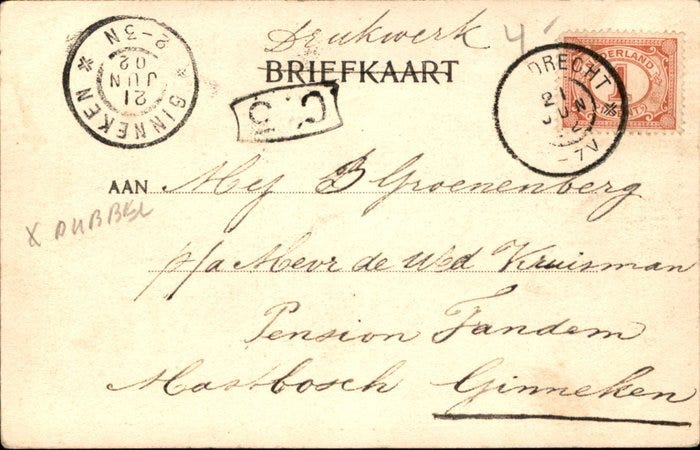 Drukwerk 4
BRIEFKAART
GINNEKEN
21
JUN
02
2-3N
DRECHT
21
JUN
-7V
NEDERLAND
1
CENT
AAN Mej B Groenenberg
X DUBBEL
p/a Mevr de Wed Kruisman
Pension Tandem
Mastbosch Ginneken